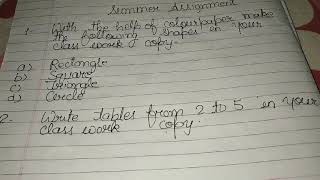 Summer Assignment
1. With the help of colourpaper make
the following shapes in your
class work copy.
a) Rectangle
b) Square
c) Triangle
d) Circle
2. Write tables from 2 to 5 in your
class work copy.